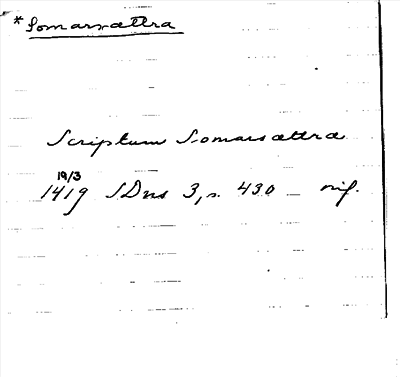 * Somarsættra
Scriptum Somarsættra
19/3
1419 SDns 3, s. 430 _ orig.